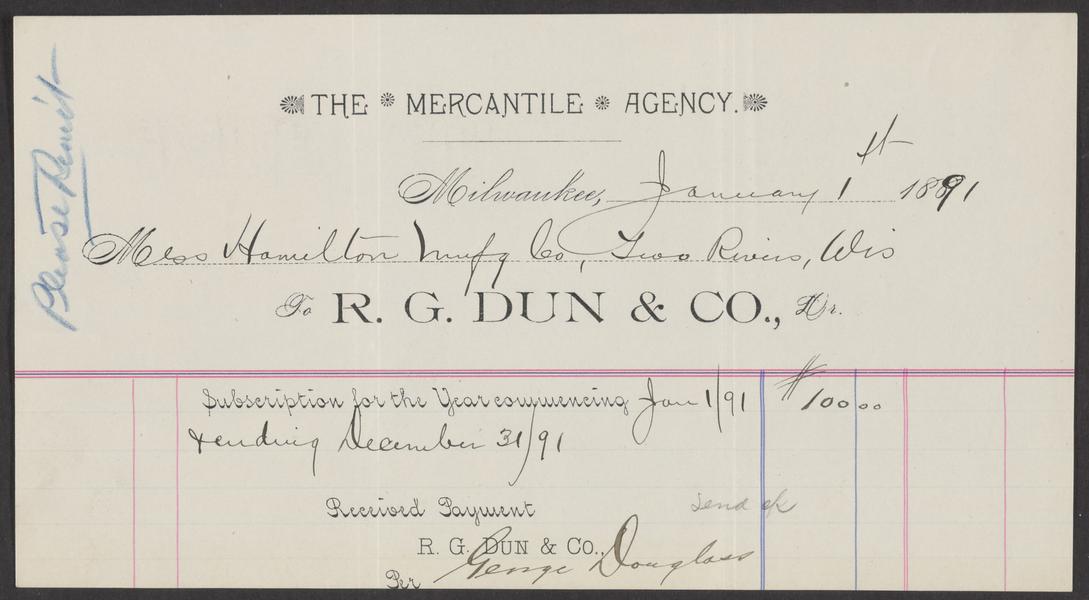 Please Remit
THE MERCANTILE AGENCY.
Milwaukee, January 1st 1891
Mess Hamilton Mnfg Co, Two Rivers, Wis
To R. G. DUN & CO., Dr.
Subscription for the Year commencing Jan 1/91 $100 00
& ending December 31/91
Received Payment
send ck
R. G. DUN & CO.,
Per George Douglass